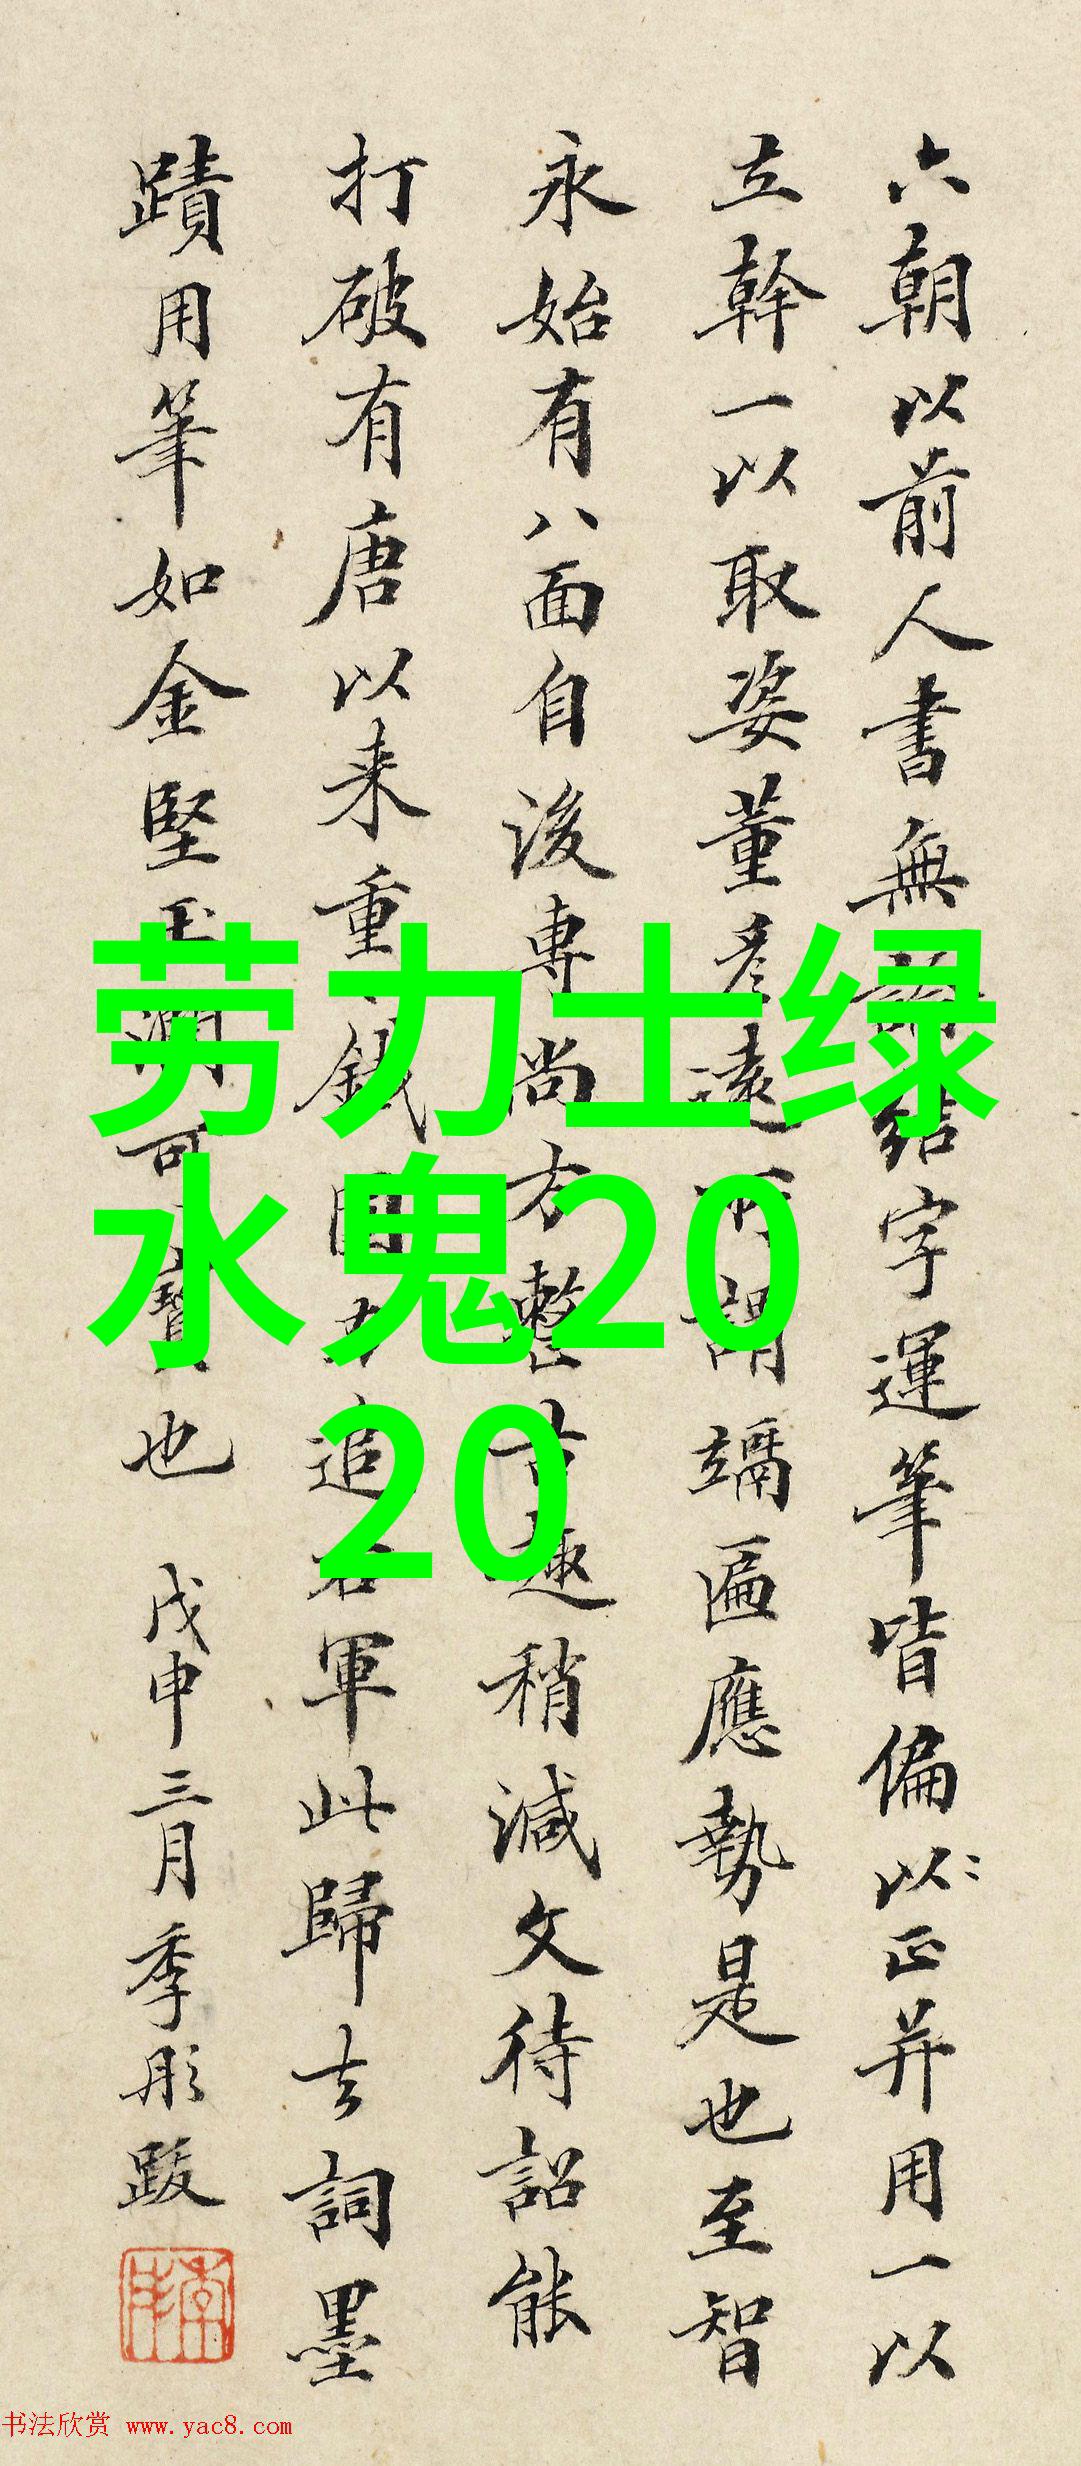 六朝以前人書無結字運筆皆偏以正并用一以
立幹一以取姿董彦遠所謂竦匾應勢是也至智
永始有八面自後専尚方整古趣稍減文待詔能
打破有唐以来重鐵圍力追右軍此歸去詞墨
蹟用筆如金堅玉潤可寶也 戊申三月季彤跋
劳力士绿
水鬼20
20
书法欣赏 www.yac8.com